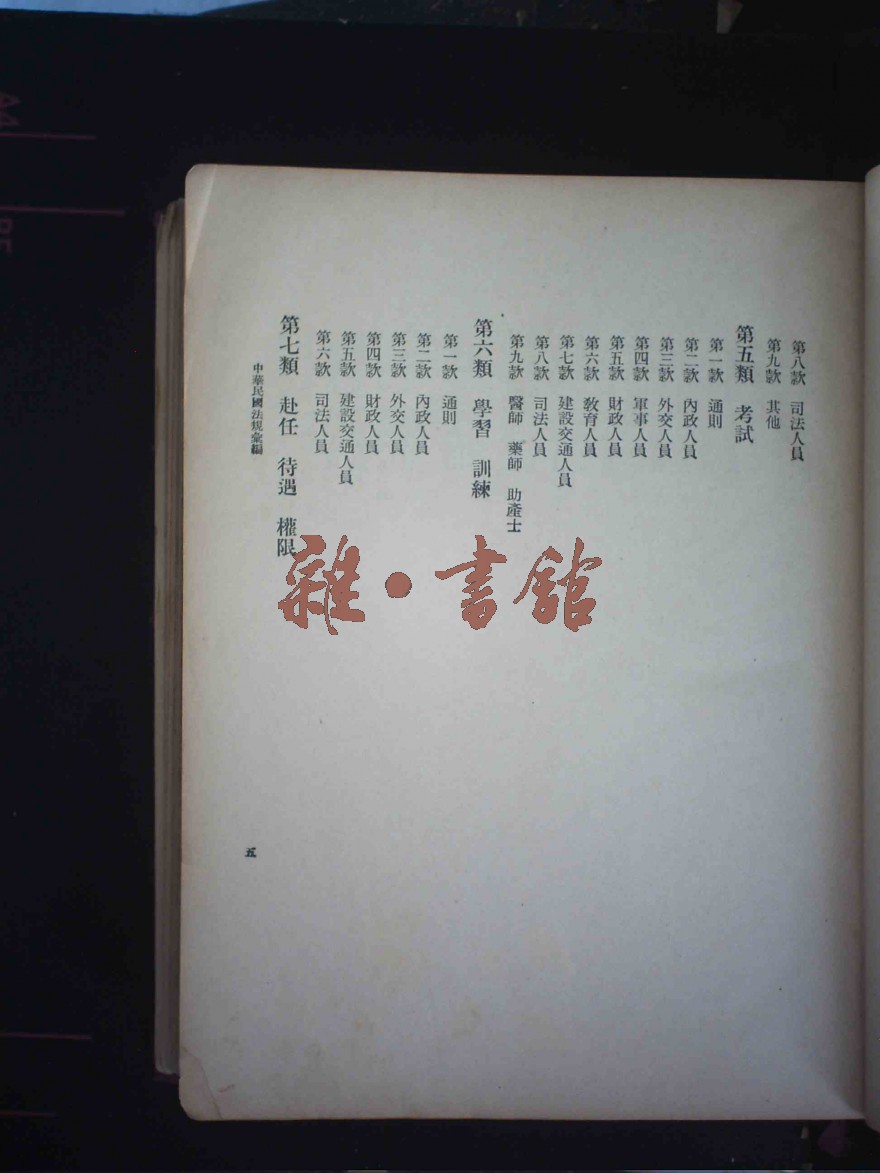 第八款　司法人員
第九款　其他
第五類　考試
第一款　通則
第二款　內政人員
第三款　外交人員
第四款　軍事人員
第五款　財政人員
第六款　敎育人員
第七款　建設交通人員
第八款　司法人員
第九款　醫師　藥師　助產士
第六類　學習　訓練
第一款　通則
第二款　內政人員
第三款　外交人員
第四款　財政人員
第五款　建設交通人員
第六款　司法人員
第七類　赴任　待遇　權限
中華民國法規彙編
五
雜·書館